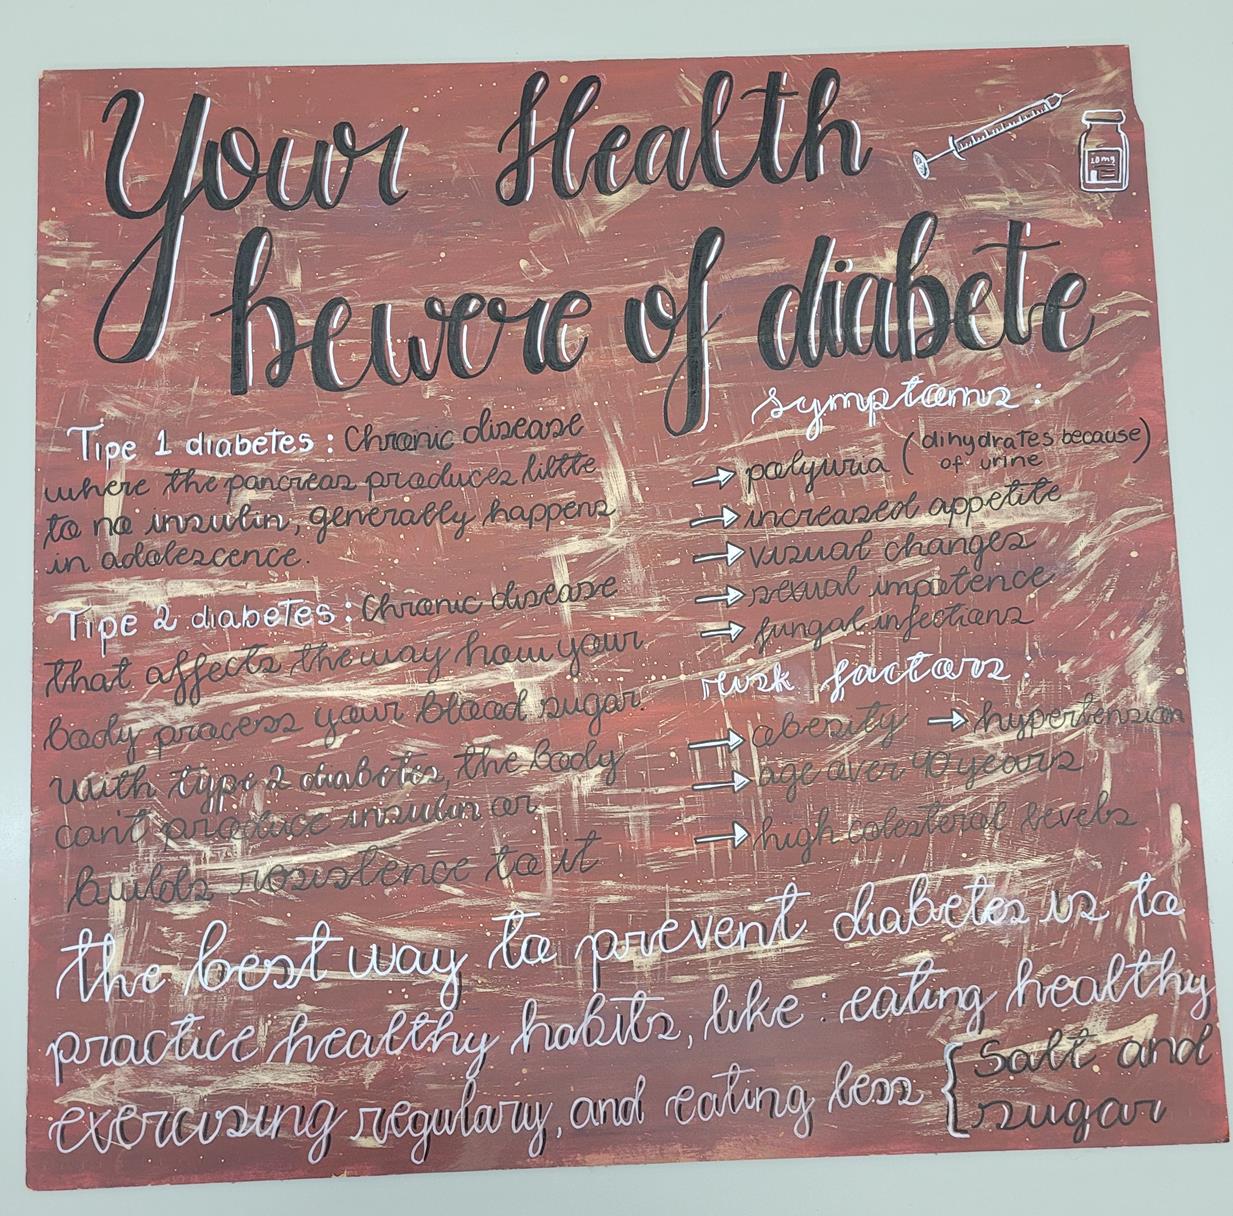 Your Health
bewere of diabete
10mg
Tipe 1 diabetes: Chronic disease
where the pancreas produces little
to no insulin, generally happens
in adolescence.
Tipe 2 diabetes: Chronic disease
that affects the way how your
body process your blood sugar.
With type 2 diabetes, the body
can't produce insulin or
builds rosistence to it
symptoms:
polyuria (dihydrates because
of urine)
increased appetite
visual changes
sexual impotence
fungal infections
risk factors:
obesity hypertension
age over 40 years
high colesterol levels
the best way to prevent diabetes is to
practice healthy habits, like: eating healthy
exercising regulary, and eating less { Salt and
sugar